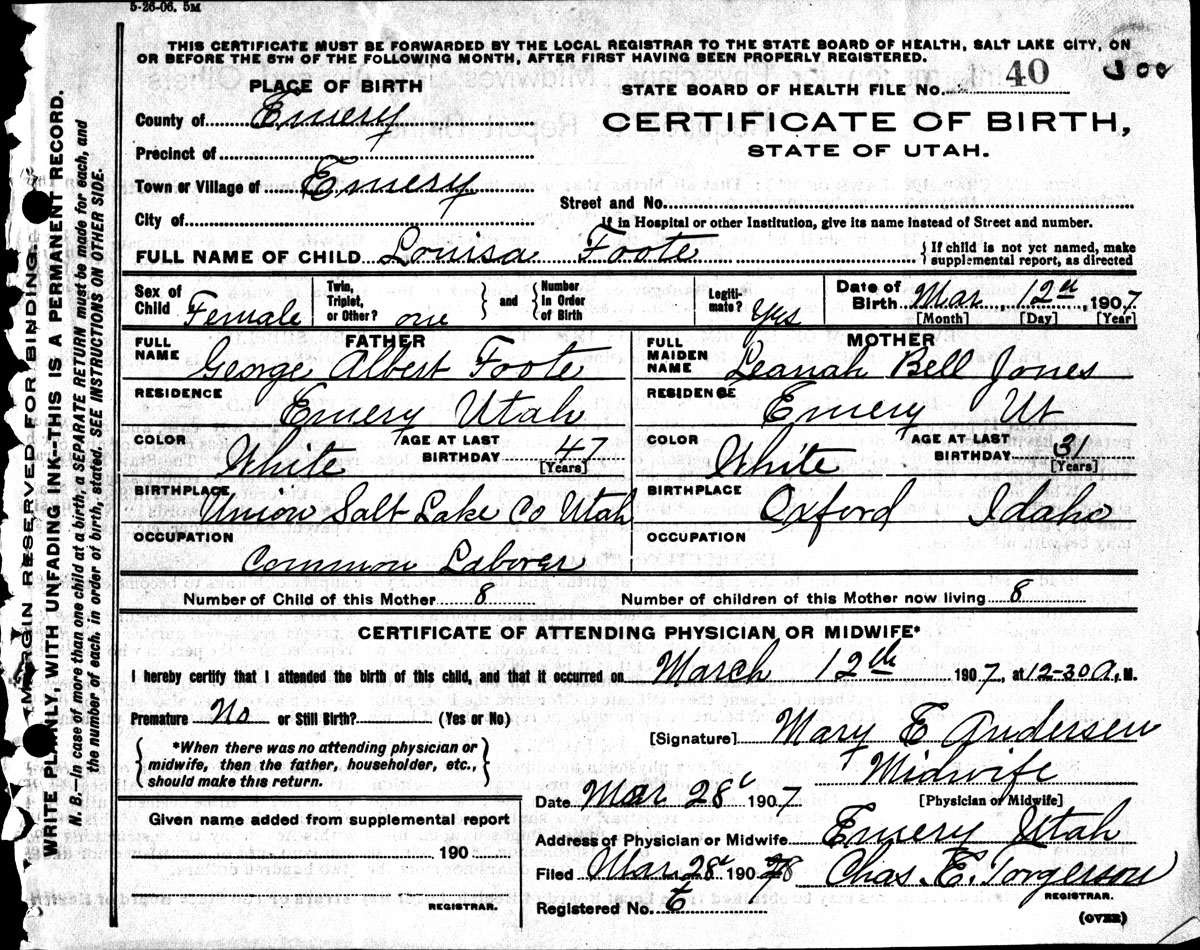 5-26-06. 5M
THIS CERTIFICATE MUST BE FORWARDED BY THE LOCAL REGISTRAR TO THE STATE BOARD OF HEALTH, SALT LAKE CITY, ON
OR BEFORE THE 5TH OF THE FOLLOWING MONTH, AFTER FIRST HAVING BEEN PROPERLY REGISTERED.
PLACE OF BIRTH
STATE BOARD OF HEALTH FILE No. 40
County of Emery
CERTIFICATE OF BIRTH,
STATE OF UTAH.
Precinct of
Town or Village of Emery
Street and No.
City of
If in Hospital or other Institution, give its name instead of Street and number.
FULL NAME OF CHILD Louisa Foote
{If child is not yet named, make supplemental report, as directed
Sex of Child Female
Twin, Triplet, or Other? one } and { Number In Order of Birth
Legitimate? Yes
Date of Birth Mar 12th 1907
[Month] [Day] [Year]
FATHER
FULL NAME George Albert Foote
RESIDENCE Emery Utah
COLOR White
AGE AT LAST BIRTHDAY 47
[Years]
BIRTHPLACE Union Salt Lake Co Utah
OCCUPATION Common Laborer
MOTHER
FULL MAIDEN NAME Leanah Bell Jones
RESIDENCE Emery Ut
COLOR White
AGE AT LAST BIRTHDAY 31
[Years]
BIRTHPLACE Oxford Idaho
OCCUPATION
Number of Child of this Mother 8
Number of children of this Mother now living 8
CERTIFICATE OF ATTENDING PHYSICIAN OR MIDWIFE*
I hereby certify that I attended the birth of this child, and that it occurred on March 12th 1907, at 12-30 A, M.
Premature No or Still Birth? (Yes or No)
{*When there was no attending physician or
midwife, then the father, householder, etc.,
should make this return.}
[Signature] Mary E Andersen
Midwife
[Physician or Midwife]
Date Mar 28 1907
Given name added from supplemental report
190
REGISTRAR.
Address of Physician or Midwife Emery Utah
Filed Mar 28 190 Chas. E. Torgerson
REGISTRAR.
Registered No.
(OVER)
MARGIN RESERVED FOR BINDING.
WRITE PLAINLY, WITH UNFADING INK—THIS IS A PERMANENT RECORD.
N. B.—In case of more than one child at a birth, a SEPARATE RETURN must be made for each, and
the number of each, in order of birth, stated. SEE INSTRUCTIONS ON OTHER SIDE.